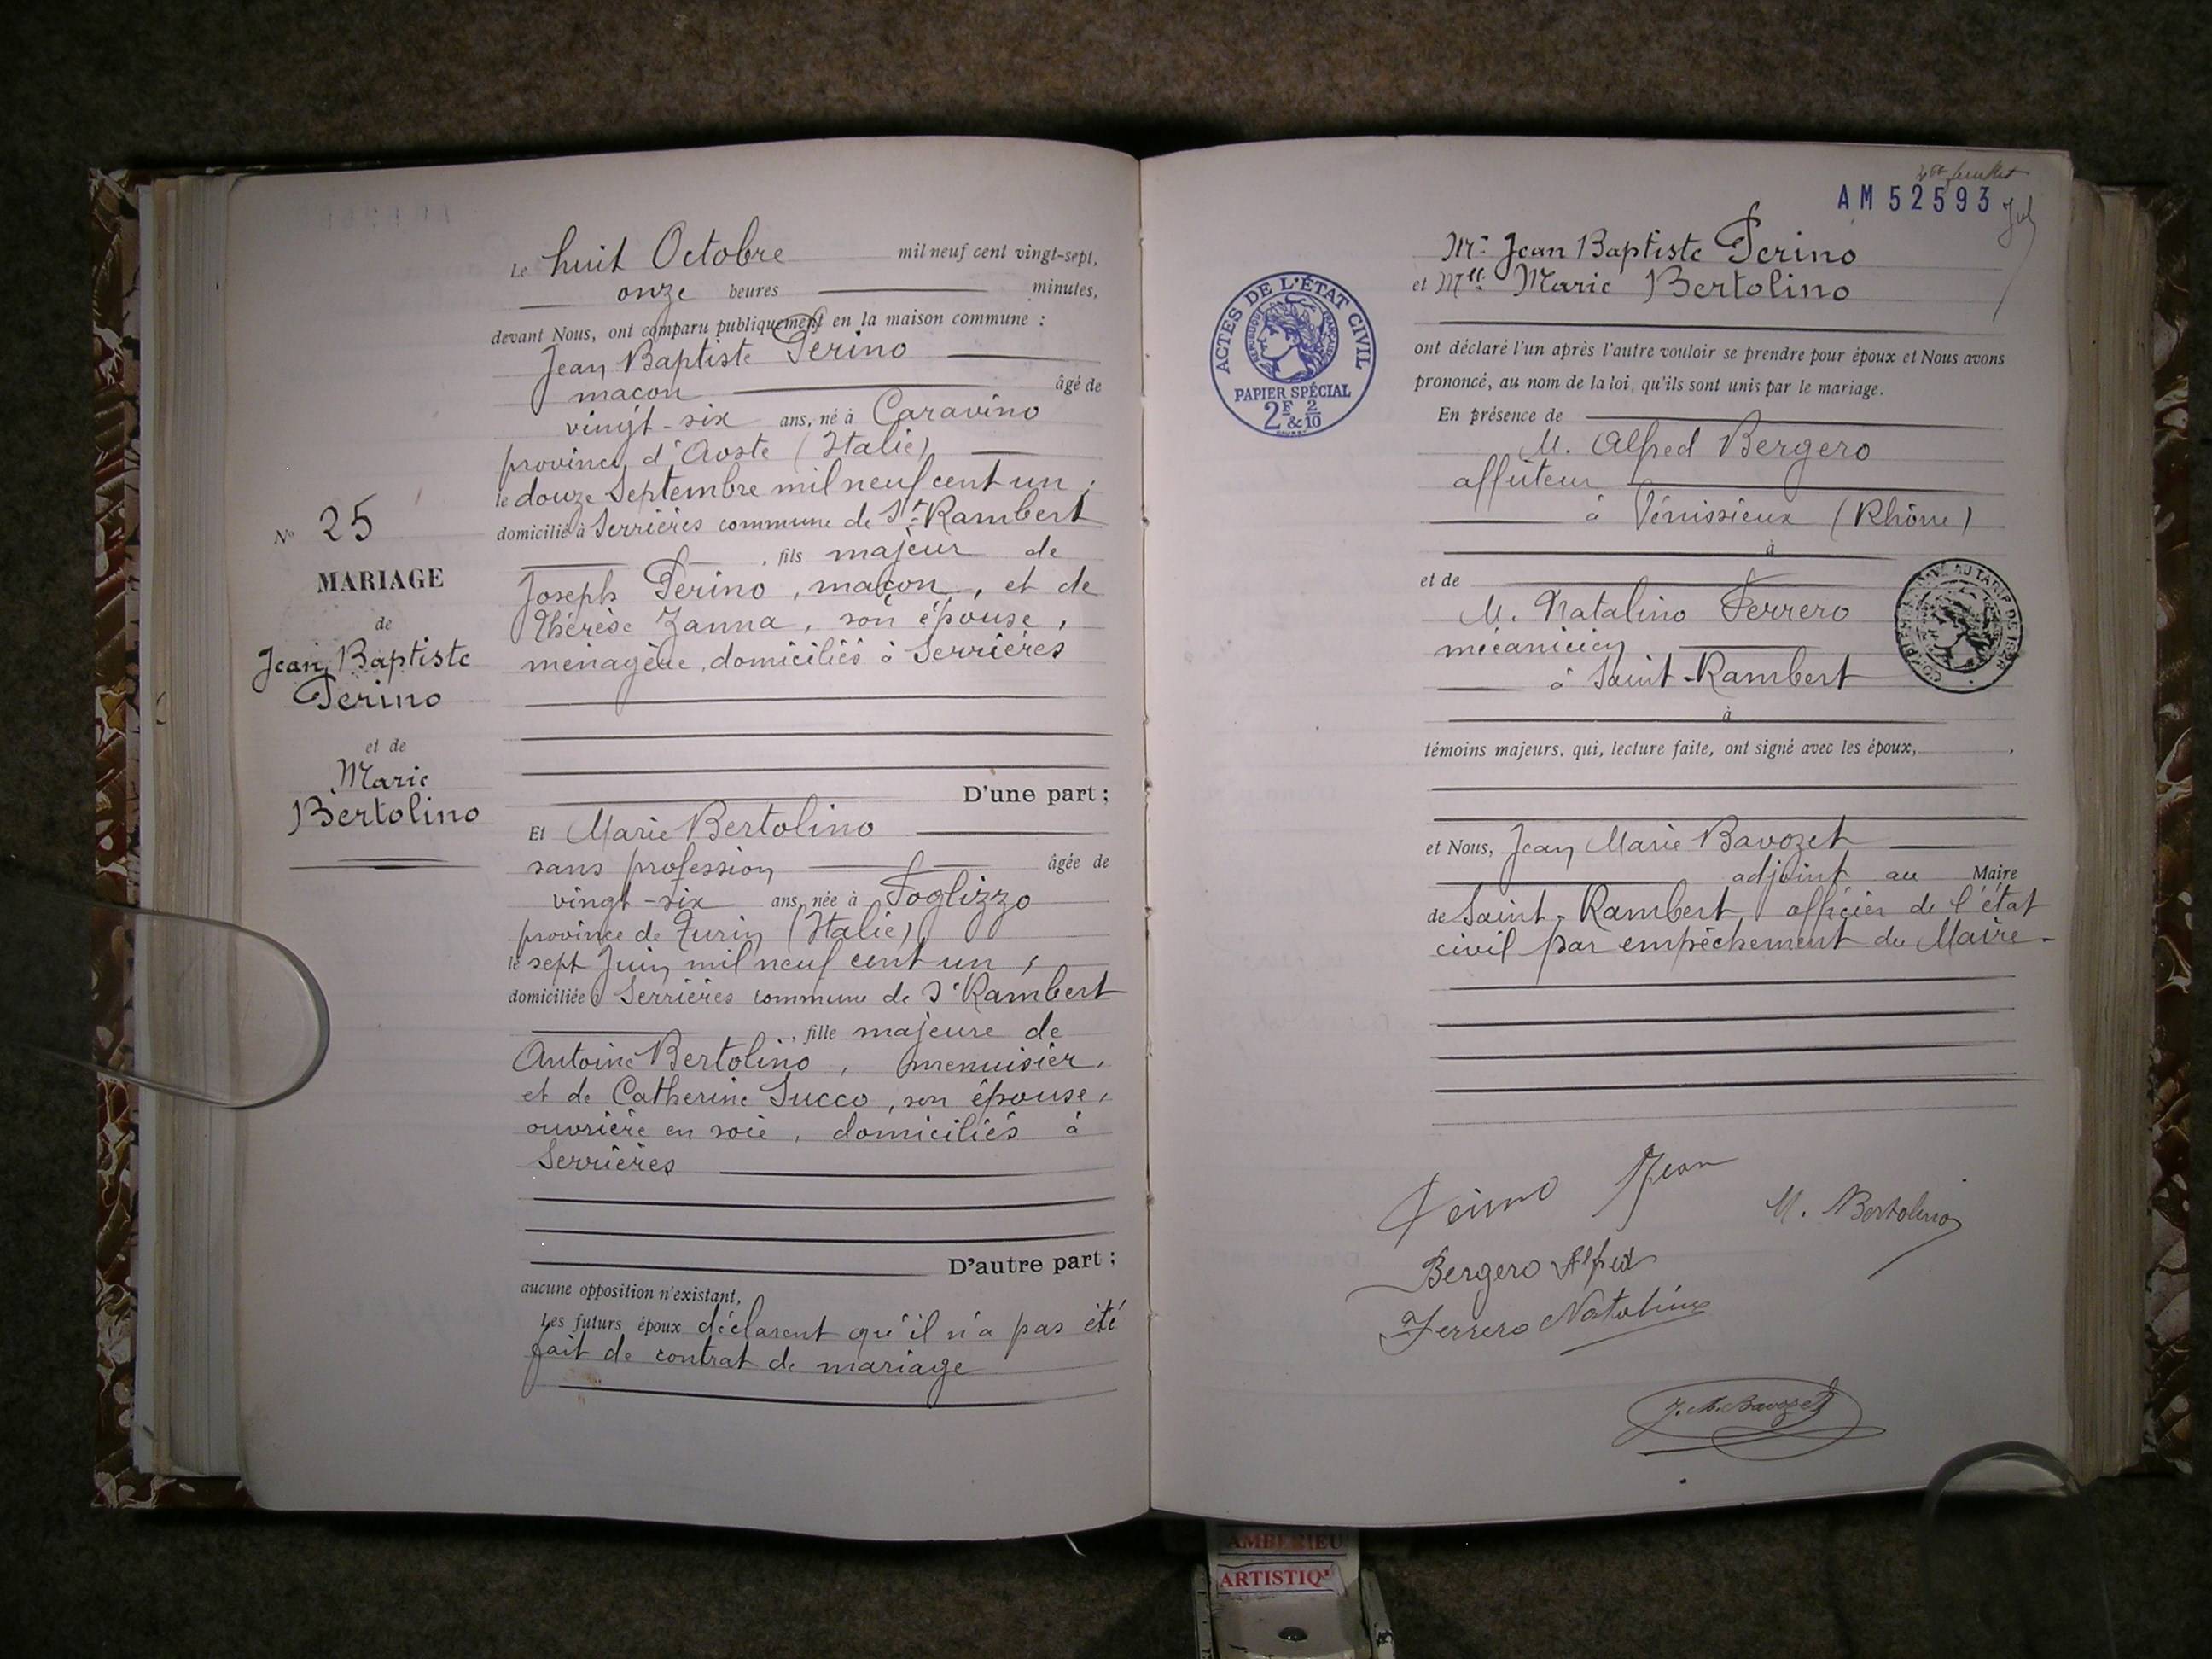 Le huit Octobre mil neuf cent vingt-sept,
onze heures minutes,
devant Nous, ont comparu publiquement en la maison commune :
Jean Baptiste Perino
maçon âgé de
vingt-six ans, né à Caravino
province d'Aoste (Italie)
le douze Septembre mil neuf cent un ;
domicilié à Serrières commune de St Rambert
, fils majeur de
Joseph Perino, maçon, et de
Thérèse Zanna, son épouse,
ménagère, domiciliés à Serrières
D'une part ;
N° 25
MARIAGE
de
Jean Baptiste
Perino
et de
Marie
Bertolino
Et Marie Bertolino
sans profession âgée de
vingt-six ans, née à Foglizzo
province de Turin (Italie)
le sept Juin mil neuf cent un ,
domiciliée à Serrières commune de St Rambert
, fille majeure de
Antoine Bertolino, menuisier,
et de Catherine Succo, son épouse,
ouvrière en soie, domiciliés à
Serrières
D'autre part ;
aucune opposition n'existant,
Les futurs époux déclarent qu'il n'a pas été
fait de contrat de mariage
AM 52593
Mr Jean Baptiste Perino
et Mlle Marie Bertolino
ont déclaré l'un après l'autre vouloir se prendre pour époux et Nous avons
prononcé, au nom de la loi, qu'ils sont unis par le mariage.
En présence de
M. Alfred Bergero
affûteur
à Vénissieux (Rhône)
à
et de
M. Natalino Ferrero
mécanicien
à Saint-Rambert
à
témoins majeurs, qui, lecture faite, ont signé avec les époux, ,
et Nous, Jean Marie Bavozet
adjoint au Maire
de Saint-Rambert, officier de l'état
civil par empêchement du Maire.
Perino Jean
M. Bertolino
Bergero Alfred
Ferrero Natalino
J. M. Bavozet
ACTES DE L'ÉTAT CIVIL
RÉPUBLIQUE FRANÇAISE
PAPIER SPÉCIAL
2F & 2/10
AMBERIEU
ARTISTIQ'